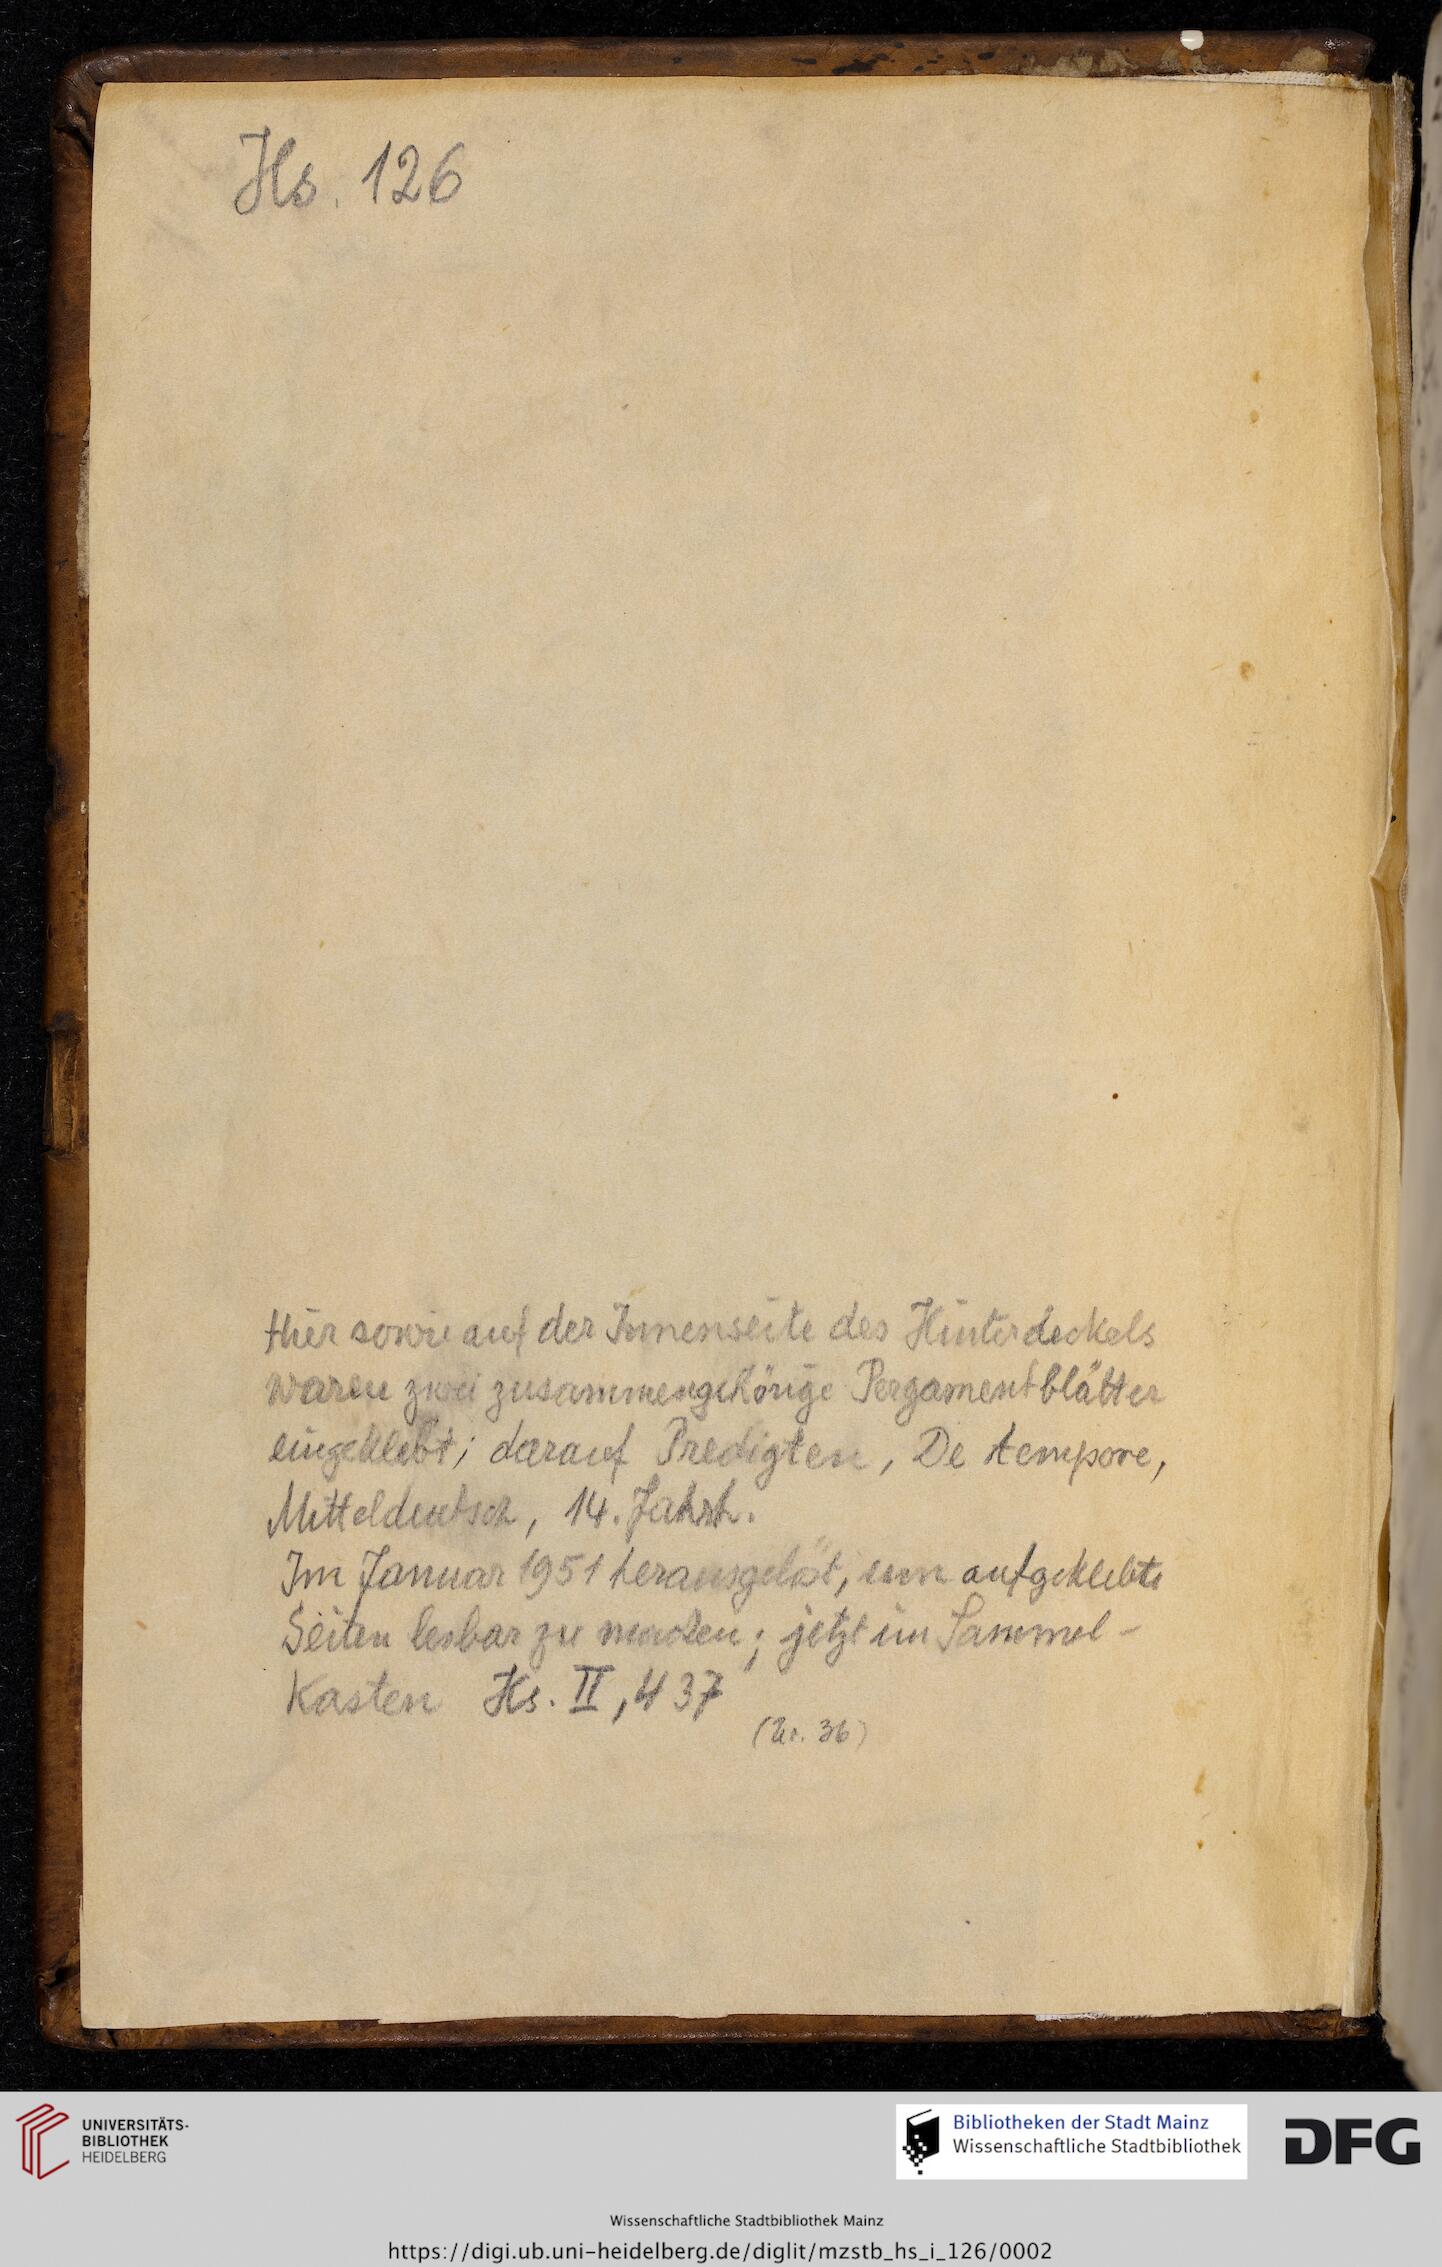 Hs. 126
Hier sowie auf der Innenseite des Hinterdeckels
waren zwei zusammengehörige Pergamentblätter
eingeklebt; darauf Predigten, De tempore,
Mitteldeutsch, 14. Jahrh.
Im Januar 1951 herausgelöst, um aufgeklebte
Seiten lesbar zu machen; jetzt im Sammel-
Kasten Hs. II, 437
(Nr. 36)
UNIVERSITÄTS-
BIBLIOTHEK
HEIDELBERG
Bibliotheken der Stadt Mainz
Wissenschaftliche Stadtbibliothek
DFG
Wissenschaftliche Stadtbibliothek Mainz
https://digi.ub.uni-heidelberg.de/diglit/mzstb_hs_i_126/0002